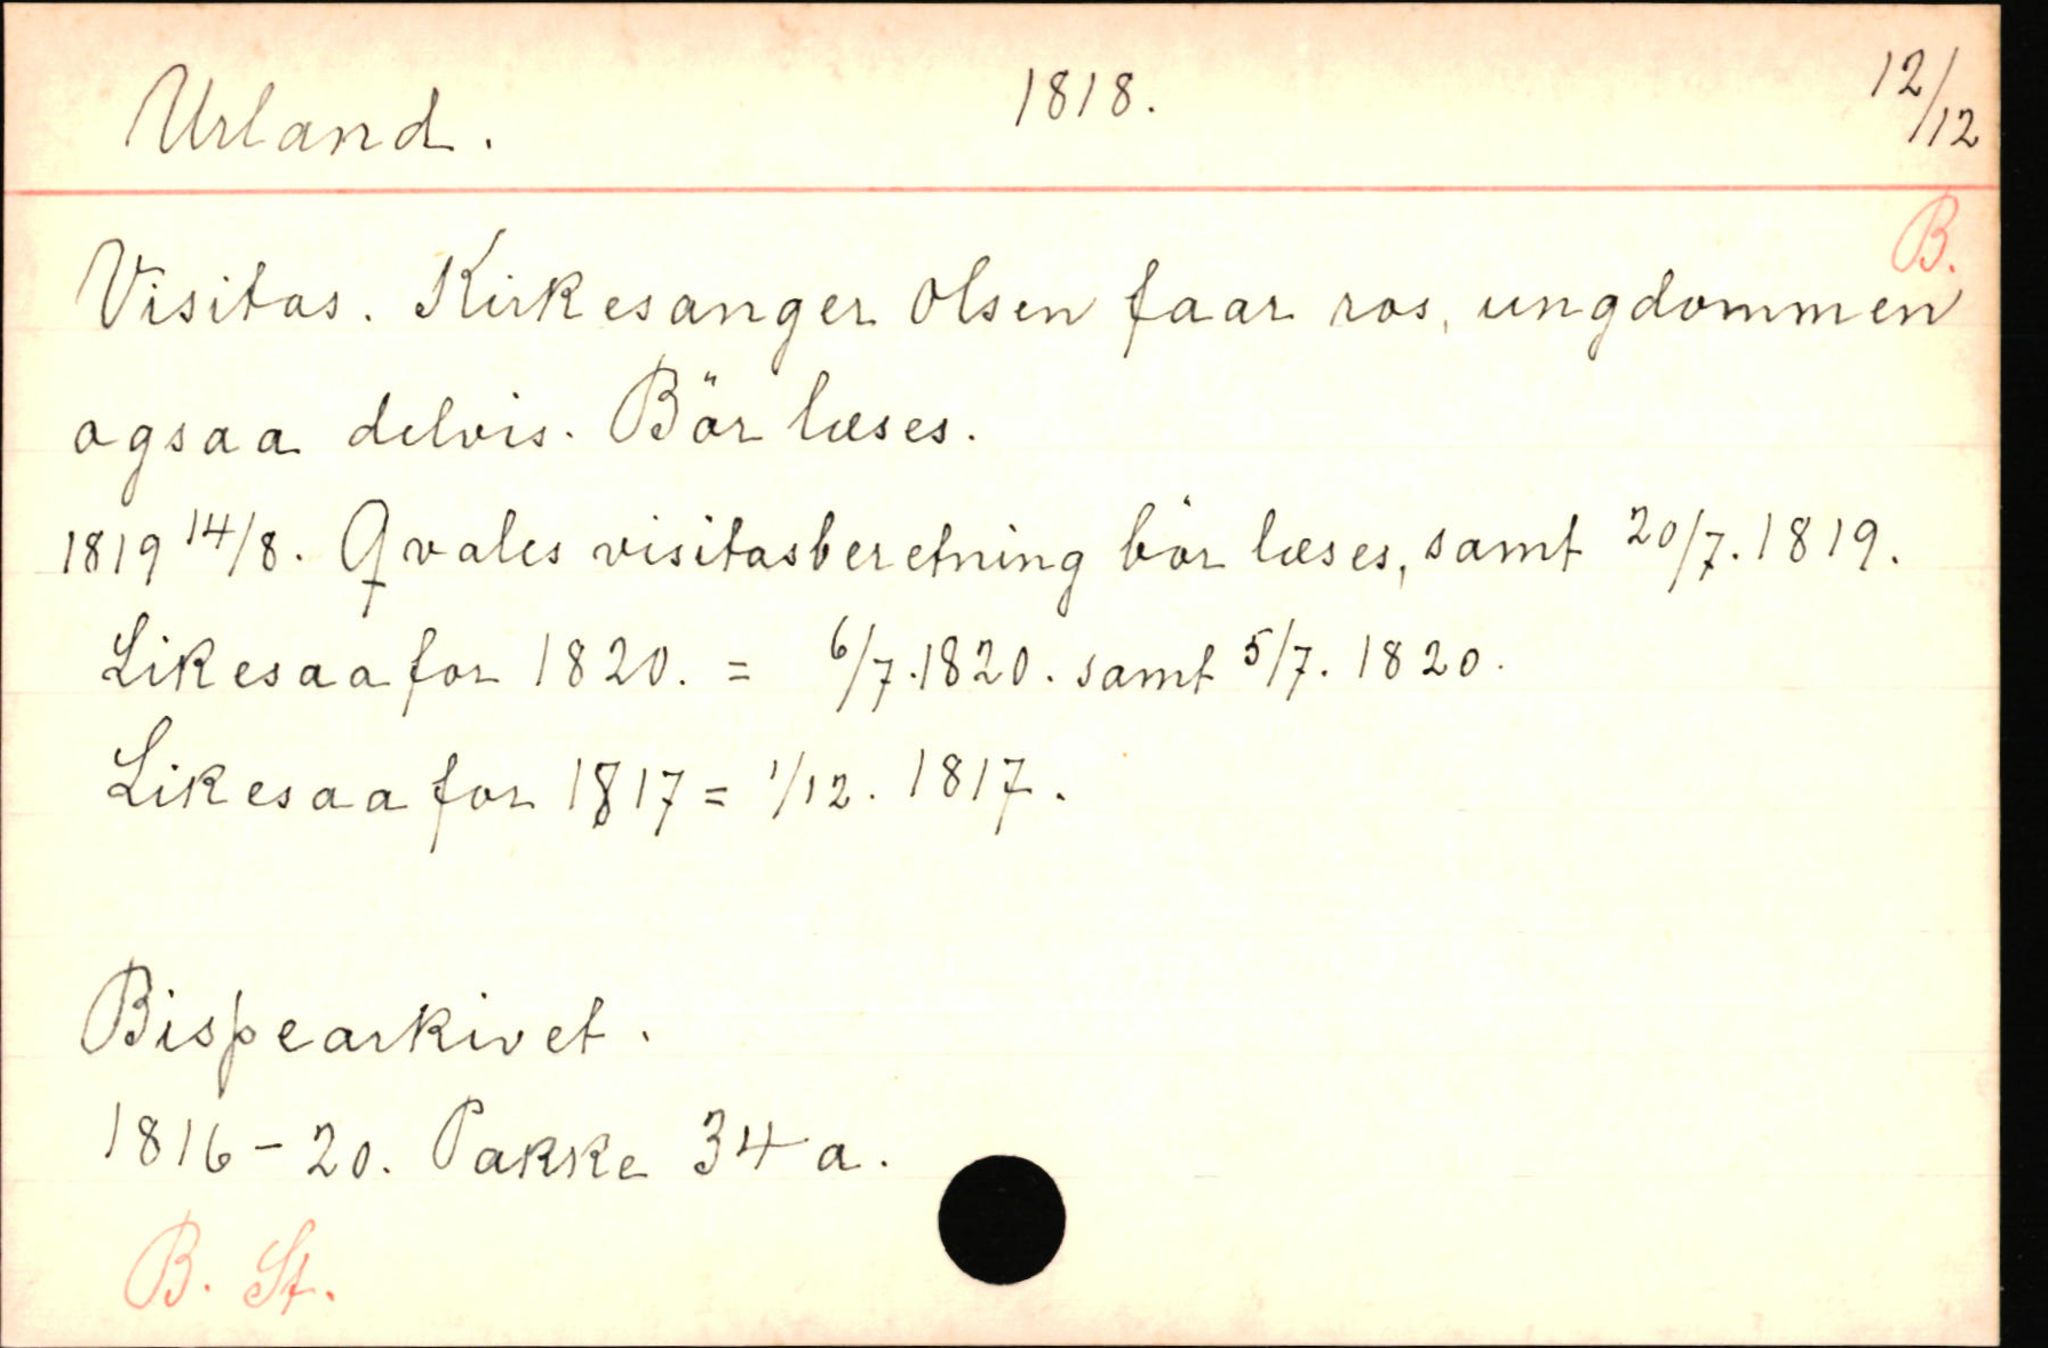 Urland. 1818. 12/12
B.
Visitas. Kirkesanger Olsen faar ros, ungdommen
ogsaa delvis. Bör læses.
1819 14/8. Qvales visitasberetning bör læses, samt 20/7. 1819.
Likesaa for 1820. = 6/7. 1820. samt 5/7. 1820.
Likesaa for 1817 = 1/12. 1817.
Bispearkivet.
1816-20. Pakke 34 a.
B. St.